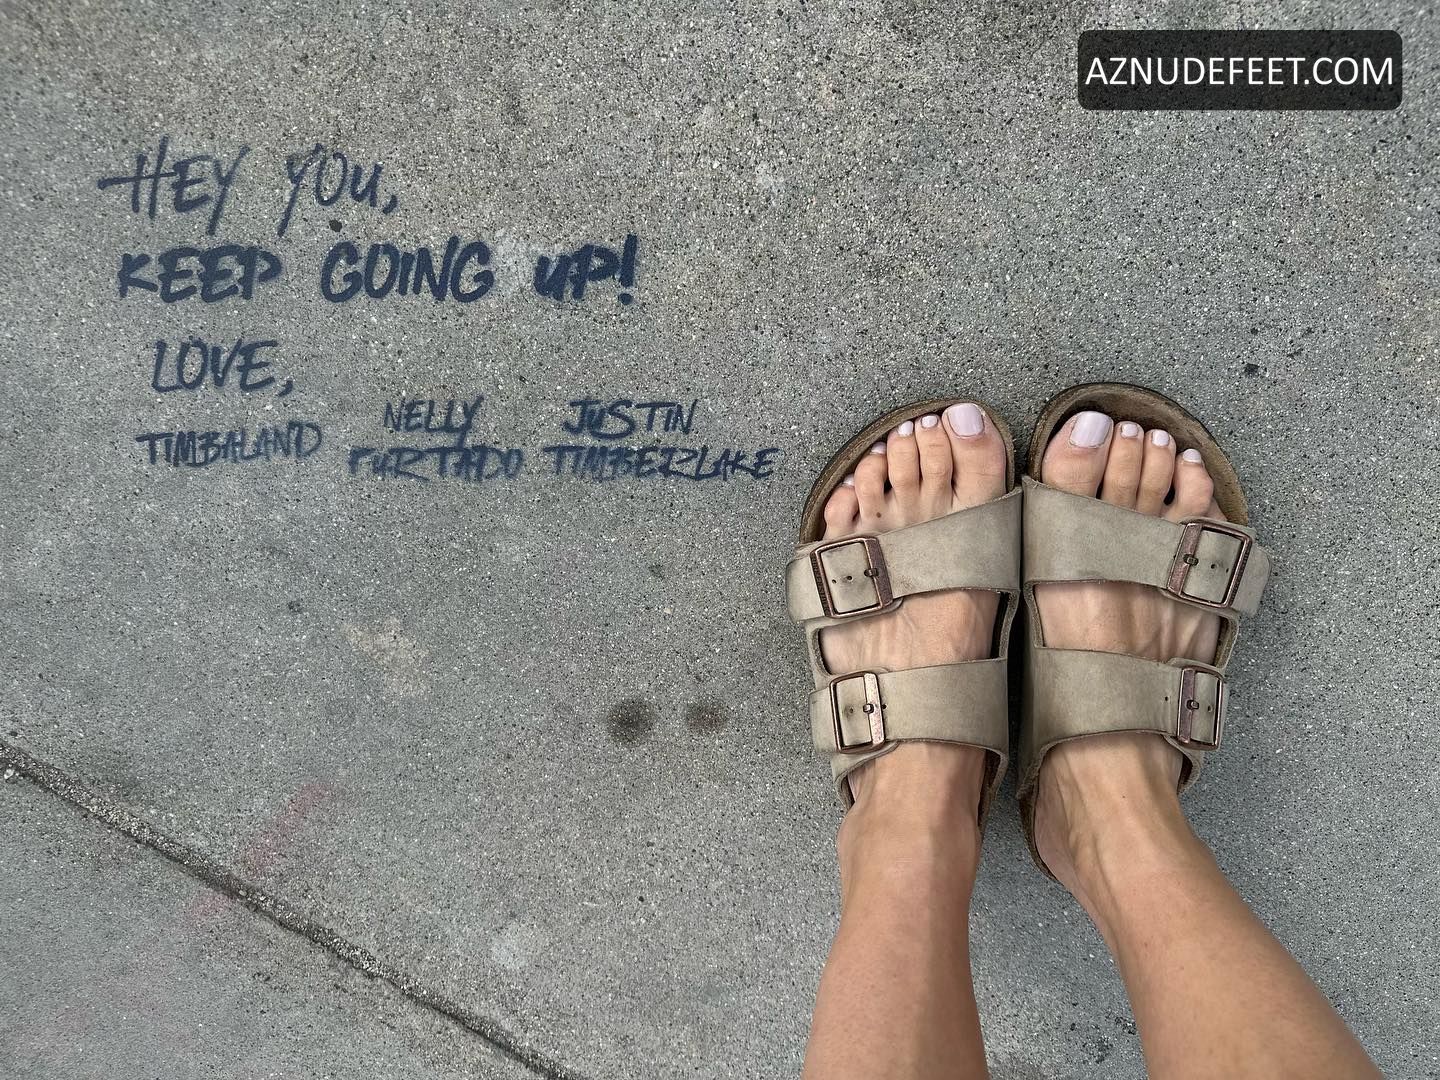 AZNUDEFEET.COM
HEY YOU,
KEEP GOING UP!
LOVE,
TIMBALAND NELLY FURTADO JUSTIN TIMBERLAKE